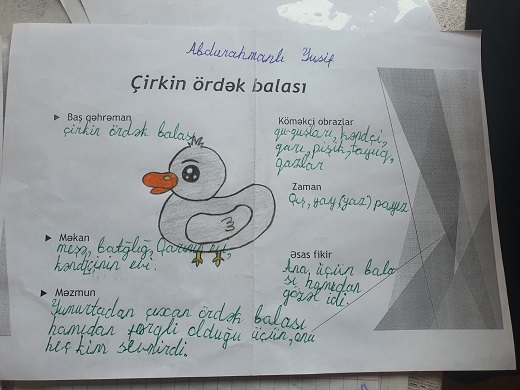 Abdurahmanlı Yusif
Çirkin ördək balası
▸ Baş qəhrəman
çirkin ördək balası
Köməkçi obrazlar
qu quşları, kəndçi,
qarı, pişik, toyuq,
qazlar
Zaman
Qış, yay (yaz) payız
▸ Məkan
meşə, batğlığ, Qarının evi,
kəndçinin evi.
Əsas fikir
Ana, üçün bala
sı hamıdan
gözəl idi.
▸ Məzmun
Yumurtadan çıxan ördək balası
hamıdan fərqli olduğu üçün, onu
heç kim sevmirdi.